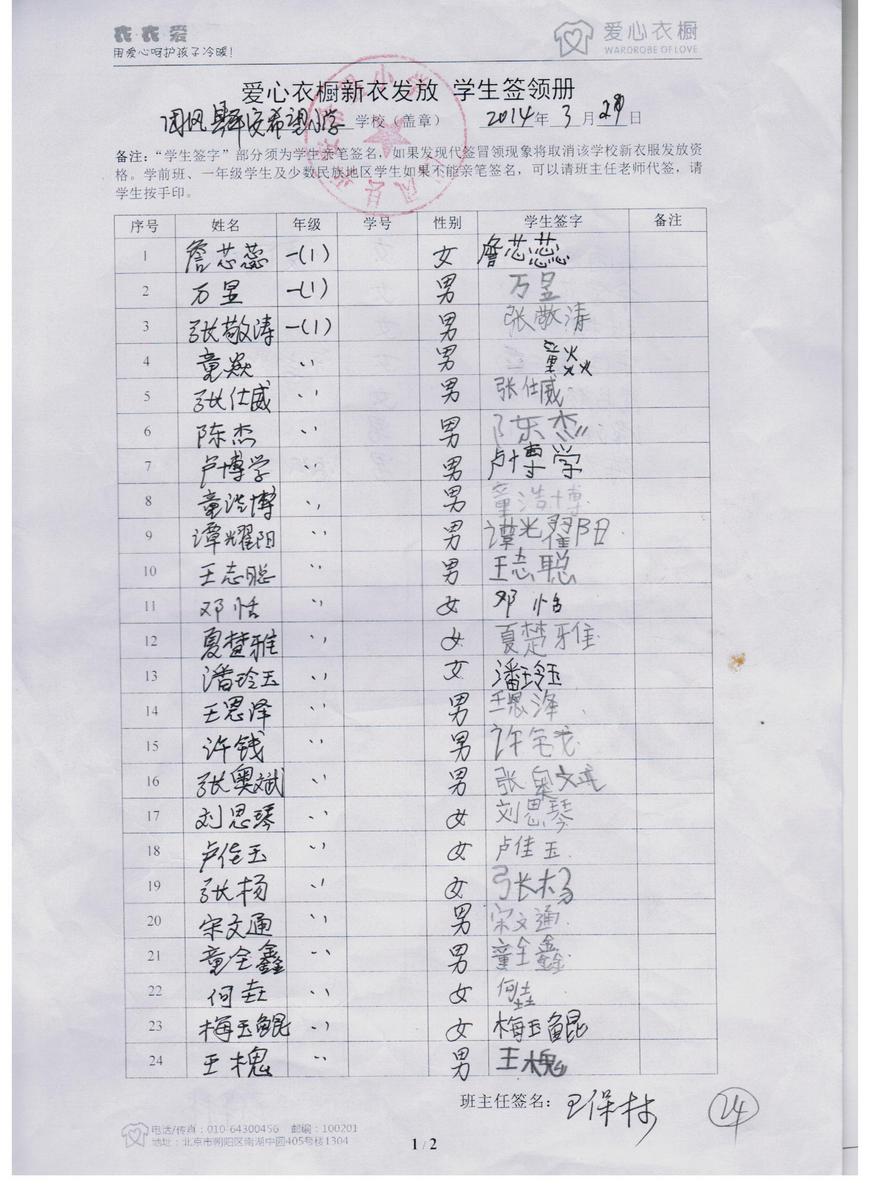 衣·衣·爱
用爱心呵护孩子冷暖!
爱心衣橱
WARDROBE OF LOVE
爱心衣橱新衣发放 学生签领册
团风县平安希望小学 学校（盖章） 2014年 3月 29日
备注：“学生签字”部分须为学生亲笔签名，如果发现代签冒领现象将取消该学校新衣服发放资
格。学前班、一年级学生及少数民族地区学生如果不能亲笔签名，可以请班主任老师代签，请
学生按手印。
序号 姓名 年级 学号 性别 学生签字 备注
1 詹芯蕊 一(1) 女 詹芯蕊
2 万昱 一(1) 男 万昱
3 张敬涛 一(1) 男 张敬涛
4 童焱 〃 男 童焱
5 张仕威 〃 男 张仕威
6 陈杰 〃 男 陈杰
7 卢博学 〃 男 卢博学
8 童浩博 〃 男 童浩博
9 谭耀阳 〃 男 谭耀阳
10 王志聪 〃 男 王志聪
11 邓恬 〃 女 邓恬
12 夏楚雅 〃 女 夏楚雅
13 潘玲玉 〃 女 潘玲玉
14 王恩泽 〃 男 王恩泽
15 许钱 〃 男 许钱
16 张奥斌 〃 男 张奥斌
17 刘思琴 〃 女 刘思琴
18 卢佳玉 〃 女 卢佳玉
19 张杨 〃 女 张杨
20 宋文通 〃 男 宋文通
21 童全鑫 〃 男 童全鑫
22 何垚 〃 女 何垚
23 梅玉鲲 〃 女 梅玉鲲
24 王槐 〃 男 王槐
班主任签名： 王保林 24
电话/传真：010-64300456 邮编：100201
地址：北京市朝阳区南湖中园405号楼1304
1 / 2